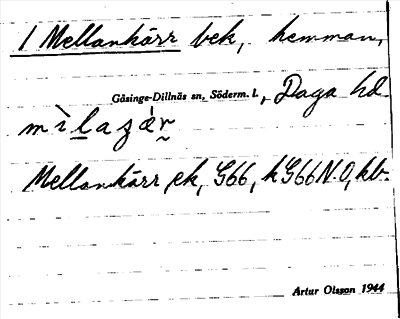 1 Mellankärr bek, hemman,
Gåsinge-Dillnäs sn, Söderm. l., Daga hd
mìlaʒǽr
Mellankärr ek, G66, kG66N.O, kb.
Artur Olsson 1944